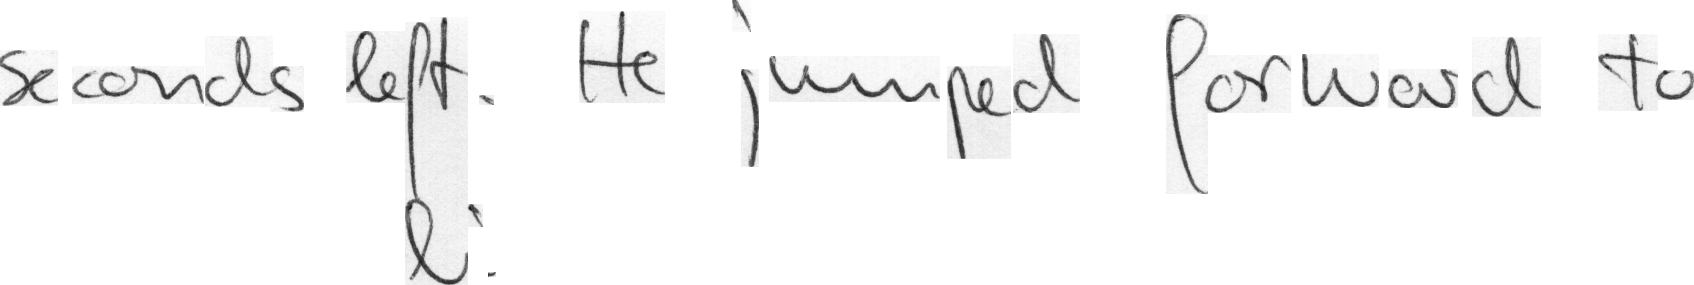 seconds left. He jumped forward to